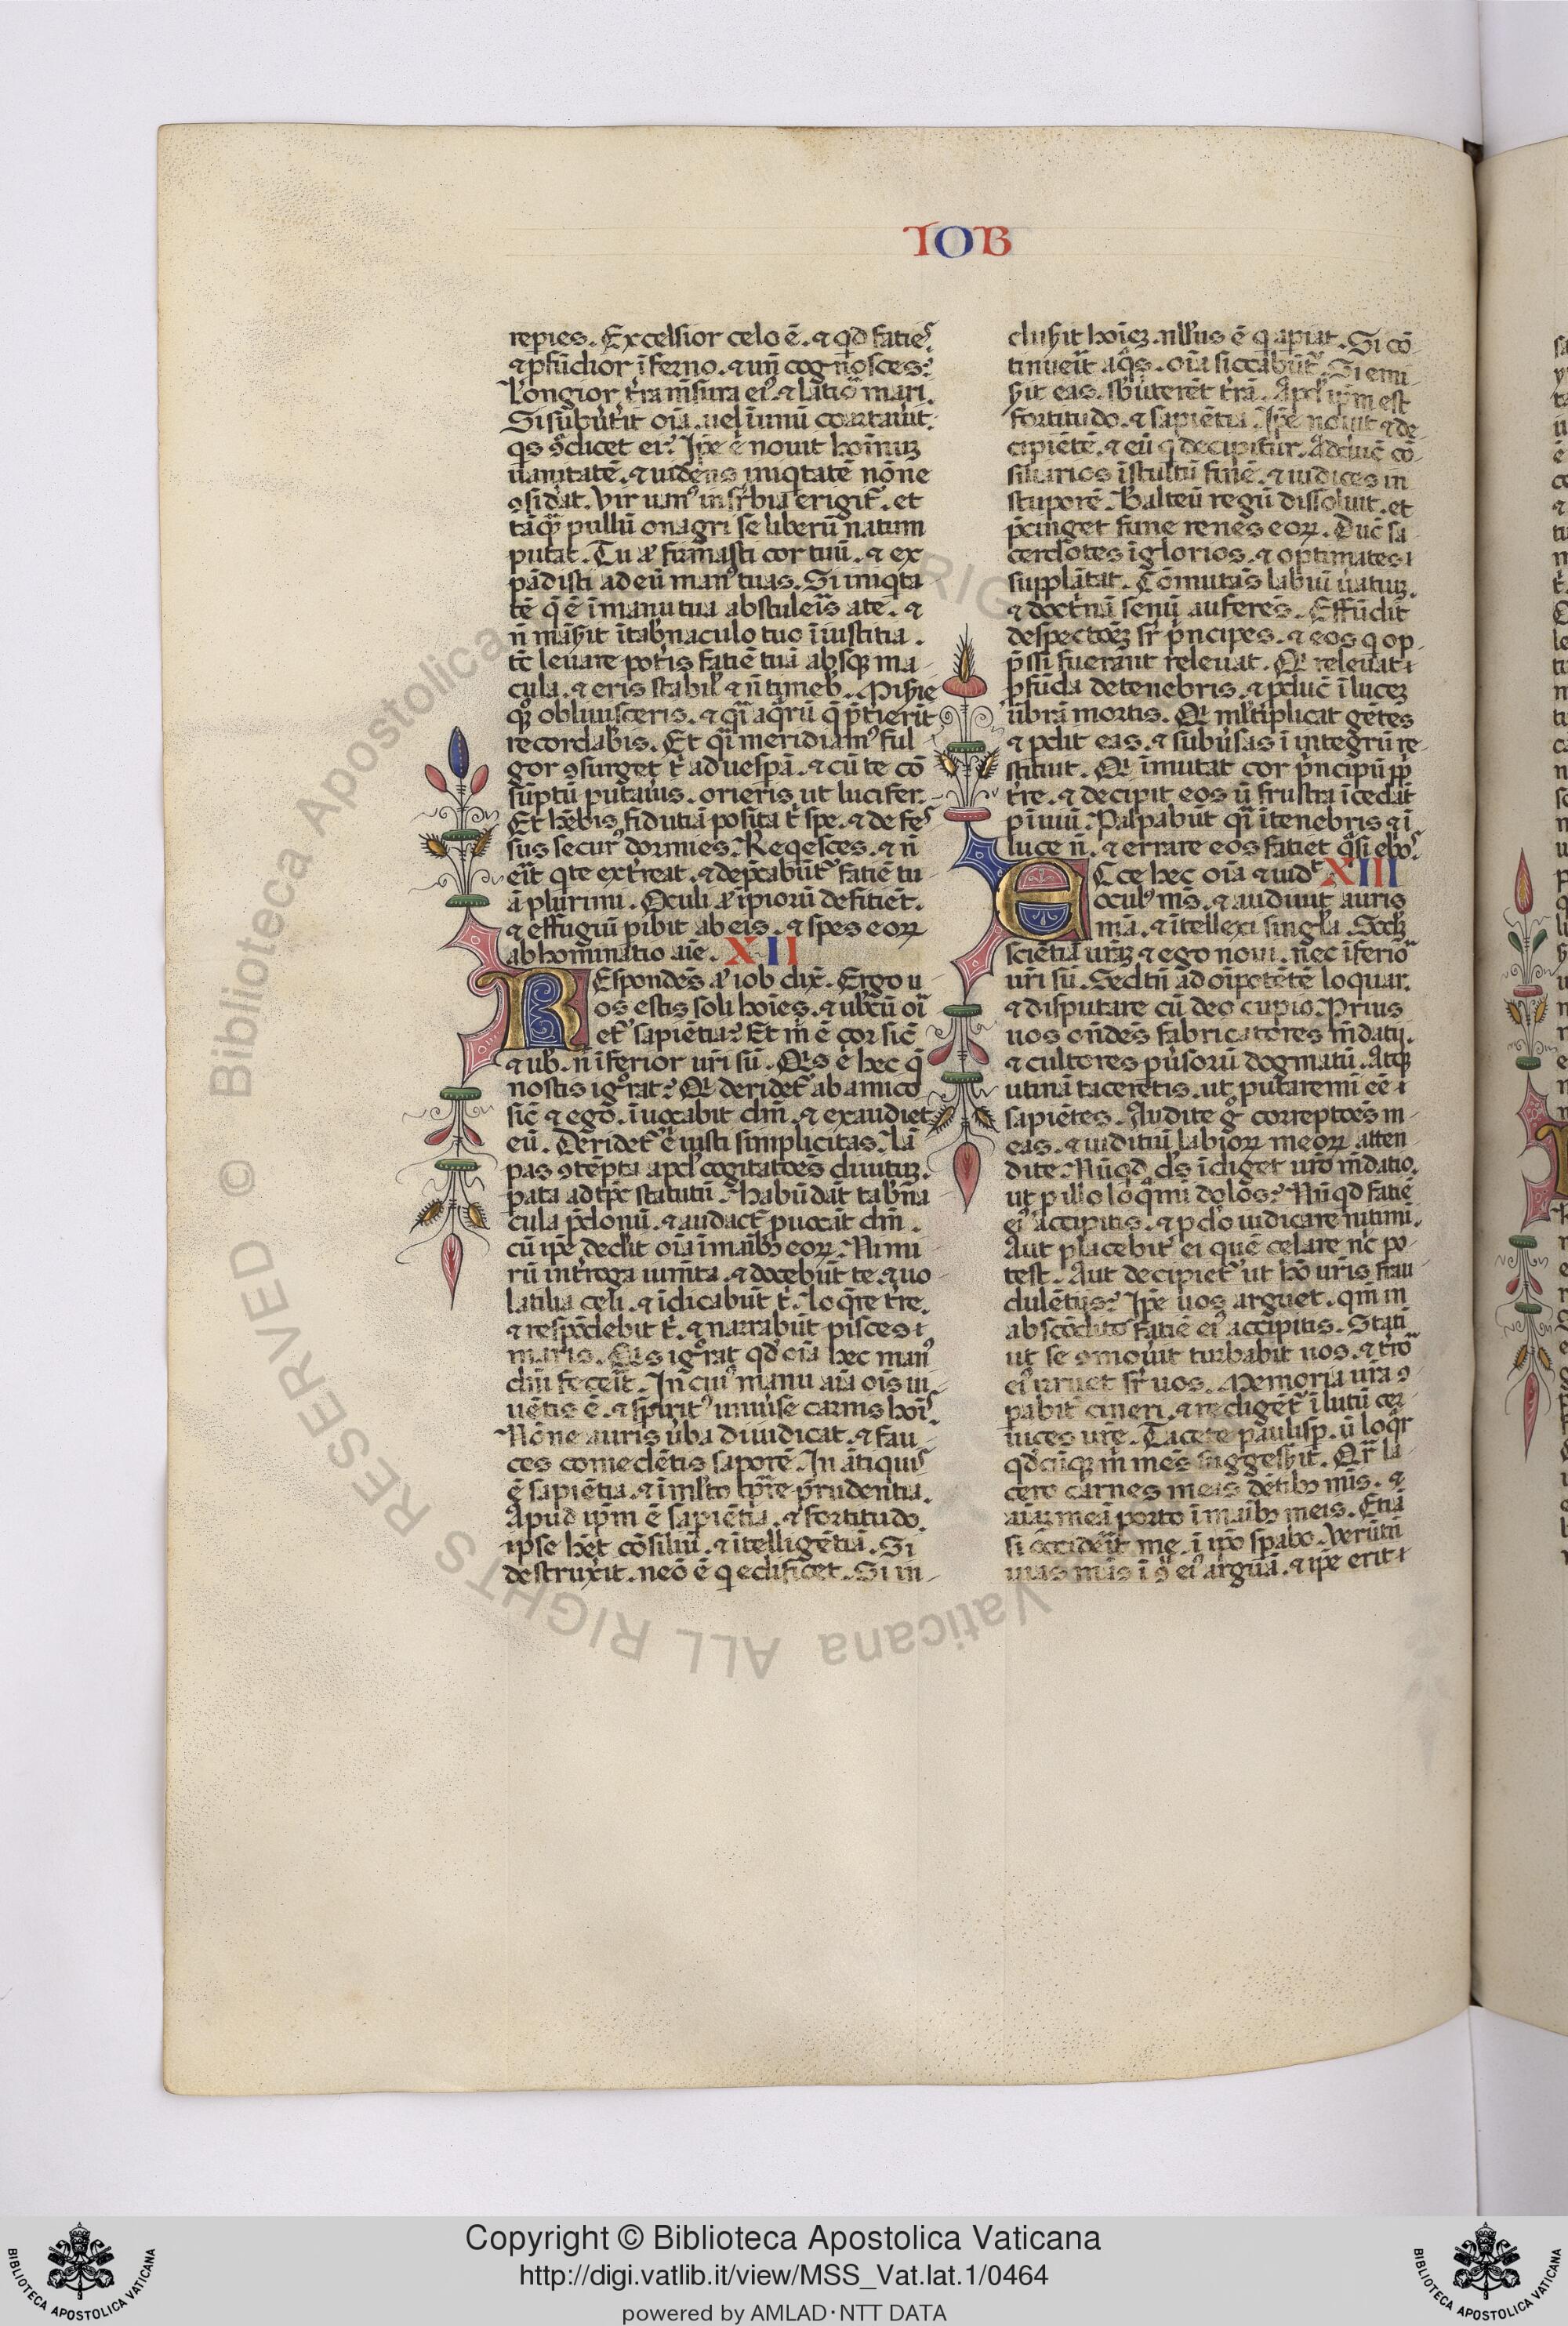 IOB
repies. Excelsior celo ē. ⁊ qd faties.
⁊ pfūdior īferno. ⁊ uñ cognosces?
Longior tr̄a m̄sura eiꝰ. ⁊ latior mari.
Si sūbūtit oīa. uel ī unū coartauīt.
qs ꝯdicet ei? Ip̄e ē nouit hoīnuȝ
uanitatē. ⁊ uidēns iniqtatē nōne
ꝯsidat. Vir uanꝰ in sr̄bia erigit̄. et
tāqȝ pullū onagri se liberū natum
putat. Tu aū firmasti cor tuū. ⁊ ex
pādisti ad eū manꝰ tuas. Si iniqta
tē q̄ ē ī manu tua abstuleīs a te. ⁊
n̄ māsit ī tab̄naculo tuo īiustitia.
tc̄ leuare potīs fatiē tuā absqȝ ma
cula. ⁊ eris stabil ⁊ n̄ timeb. Misie
qȝ obliuisceris. ⁊ q̄i aq̄rū q̄ p̄tierīt
recordab̄is. Et q̄i meridianꝰ ful
gor ꝯsurget t̄ ad uesp̄ā. ⁊ cū te cō
sūptū putaūis. orieris ut lucifer.
Et hēbis fidutiā posita t̄ spe. ⁊ defes
sus securꝰ dormies. Reqesces. ⁊ n̄
eīt q te extr̄eat. ⁊ dep̄cabūt̄ fatiē tu
ā plurimi. Oculi aū īpiorū defitiēt.
⁊ effugiū pibit ab eis. ⁊ spes eoꝝ
abhominatio aīe. XII
REspondēs aū iob dix̄. Ergo u
os estis soli hoīes. ⁊ ub̄cū oī
et̄ sapiētia? Et m̄ ē cor sic̄
⁊ ub. n̄ īferior ur̄i sū. Qis ē hec q̄
nostis igrat? Qi deridet̄ ab amico
sic̄ ⁊ egō. īuocabit dm̄. ⁊ exaudiet
eū. Deridet̄ ē iusti simplicitas. Lā
pas ꝯtēpta apd cogitatōes diuituȝ.
pata ad tp̄c statutū. Habūdāt tab̄na
cula p̄donū. ⁊ audact̄ puocāt dm̄.
cū ip̄e dedīt oīa ī maībȝ eoꝝ. Nimi
rū intr̄oga iumīta. ⁊ docebūt te. ⁊ uo
latilia celi. ⁊ īdicabūt t̄. Loq̄re tr̄e.
⁊ respōdebit t̄. ⁊ narrabūt pisces
maris. Qis igrat qd oīa hec manꝰ
dm̄i feceīt. In cuiꝰ manu aīa oīs ui
uētis ē. ⁊ spiritꝰ uniūse carnis hoīs.
Nōne auris ūba diiudicat. ⁊ fau
ces comedētis saporē. In ātiquis
ē sapiētia. ⁊ ī mlto tp̄re prudentia.
Apud ip̄m ē sapiētia. ⁊ fortitudo.
ipse hēt cōsiliū. ⁊ ītelligētiā. Si
destruxit. neō ē q edificet. Si in
clusit hoīeȝ. nllus ē q apiat. Si cō
tinueīt aqs. oīa siccabūt̄. Si emi
sit eas. sbūterēt tr̄ā. Apd ip̄m est
fortitudo. ⁊ sapiētia. Ip̄e nouit ⁊ de
cipiētē. ⁊ eū q decipitur. Adduc̄ cō
siliarios ī stultū finē. ⁊ iudices in
stuporē. Balteū regū dissoluit. et
p̄cinget fune renes eoꝝ. Duc̄ sa
cerdotes īglorios. ⁊ optimates
supplātat. Cōmutās labiū ūatiuȝ.
⁊ doctnā senū auferēs. Effūdit
despectōeȝ sr̄ p̄ncipes. ⁊ eos q op
p̄ssi fuerant releuat. Qi releuat
pfūda de tenebris. ⁊ pduc̄ ī luceȝ
ūbrā mortis. Qi multiplicat gētes
⁊ pdit eas. ⁊ subūsas ī integrū re
stituit. Qi īmutat cor p̄ncipū ppl
tr̄e. ⁊ decipit eos ū frustra īcedāt
p īuiū. Palpabūt q̄i ī tenebris ⁊ ī
luce n̄. ⁊ errare eos fatiet q̄si ebos.
ECce hec oīa ⁊ uidt XIII
oculꝰ m̄s. ⁊ audiuit auris
mā. ⁊ ītellexi singla. Scdȝ
sciētiā ur̄aȝ ⁊ ego noui. nec īferior
ur̄i sū. Sed tn̄ ad oīpotētē loquar.
⁊ disputare cū deo cupio. Prius
uos on̄dēs fabricatores m̄datii.
⁊ cultores pūsorū dogmatū. Atqȝ
utinā taceretis. ut putaremī eē
sapiētes. Audite g̊ correptōes m
eas. ⁊ iuditiū labioꝝ meoꝝ atten
dite. Nūqd ds īdiget ur̄o m̄datio.
ut p illo loqmī dolos? Nūqd fatiē
eiꝰ accipitis. ⁊ p deo iudicare nitimī.
Aut placebit̄ ei quē celare nc̄ po
test. Aut decipiet̄ ut hō ur̄is frau
dulētiis? Ip̄e uos arguet. qm̄ in
abscōdito fatiē eiꝰ accipitis. Stati
ut se ꝯmoūit turbabit uos. ⁊ tr̄or
eiꝰ irruet sr̄ uos. Memoria ur̄a ꝯ
pabit̄ cineri. ⁊ redigēt̄ ī lutū cer
uices ur̄e. Tacete paulisp. ū loqr
qdcūqȝ m̄ mēs suggesīt. Qr̄ la
cero carnes meas dētibȝ m̄is. ⁊
aīaȝ meā porto ī maībȝ meis. Etiā
si occideīt me. ī ip̄o spabo. Verūtn̄
uias mās ī ꝯ eiꝰ arguā. ⁊ ip̄e erit
Copyright © Biblioteca Apostolica Vaticana
http://digi.vatlib.it/view/MSS_Vat.lat.1/0464
powered by AMLAD·NTT DATA
BIBLIOTECA APOSTOLICA VATICANA
BIBLIOTECA APOSTOLICA VATICANA
© Biblioteca Apostolica Vaticana ALL RIGHTS RESERVED